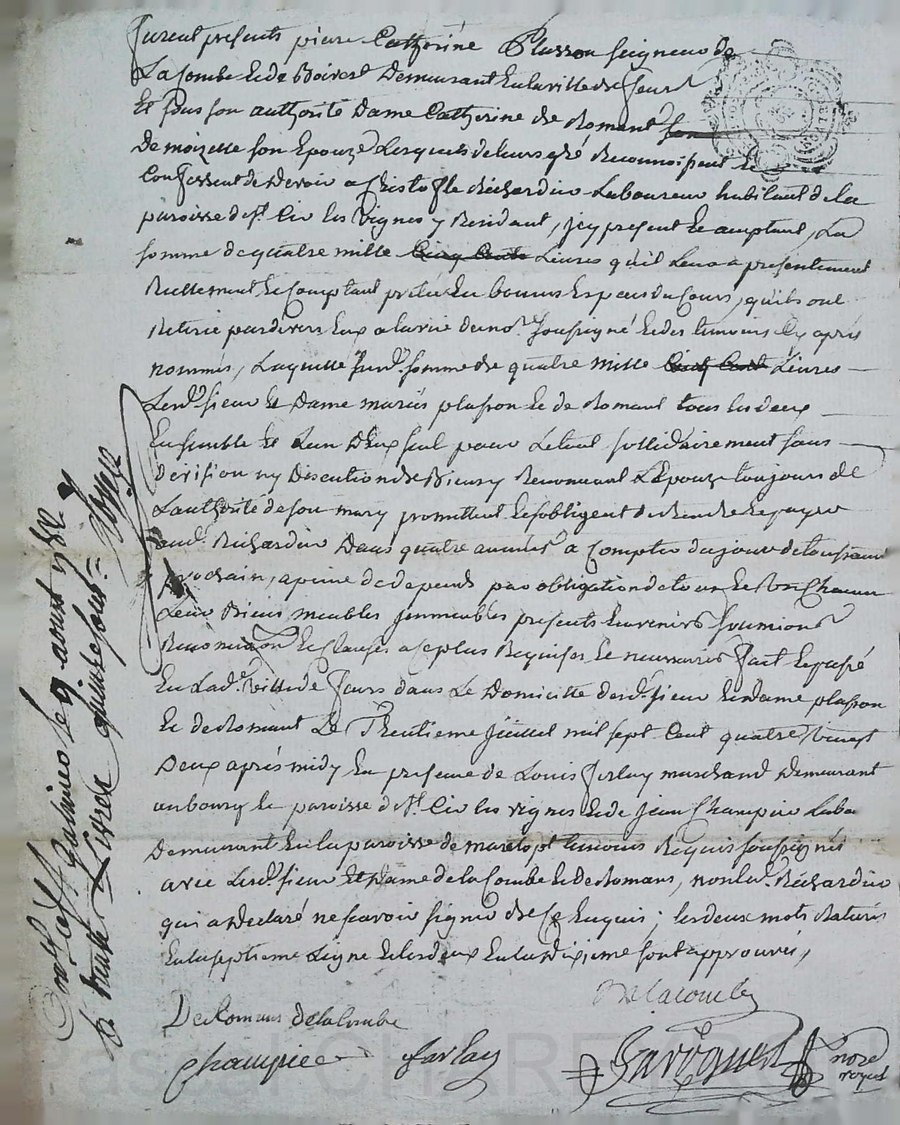 furent presents pierre Catherine Plasson seigneur de
La Combe et de Boivert Demeurant en la ville de feurs
Et sous son authorité Dame Catherine de Romant
Demoizelle son Epouze Lesquels de leurs gré Reconnoissent et
Confessent de Devoir a Christofle Richardin Laboureur habitant de la
paroisse de St. Cir les Vignes y Residant, jcy present et acceptant, La
somme de quatre mille Cinq Cents Livres qu'il Leur a presentement
Reellement et Comptant prêté En bonnes Especes du Cours, qu'ils ont
Retiré pardevers Eux a la vüe du nore. soussigné et des temoins Cy aprés
nommés, Laquelle susde. somme de quatre mille Cinq Cent Livres
Lesds. sieur et Dame mariés plasson et de Romant tous les deux
Ensemble et L'un D'eux seul pour Le tout sollidairement sans
division ny Discution de Biens y Renoncant L'Epouze toujours de
L'authorité de son mary promettent et s'obligent de Rendre et payer
aud. Richardin Dans quatre années a Compter du jour de toussaint
prochain, a peine de depens par obligation de tous et Un Chacun
Leurs Biens meubles jmmeubles presents et avenirs soumions
Renonciation et Clauses a ce plus Requises et necessaires fait et passé
En Lade. Ville de feurs dans Le Domicile desds. sieur et Dame plasson
et de Romant Le Trentieme juillet mil sept Cent quatre vingt
Deux aprés midy En presence de Louis farlay marchand Demeurant
au bourg et paroisse de St. Cir les vignes et de jean Champier Labr
Demeurant En la paroisse de marclopt temoins Requis soussignés
avec Lesds. sieur et Dame de la Combe et de Romans, non led. Richardin
qui a Declaré ne scavoir signer de ce Enquis; les deux mots Raturés
En la septieme Ligne et les deux En la Dixieme sont approuvés,
Delacombe
De Romans de la Combe
Champier farlay nore
royal
le 9 aoust 1782
trente Livres quinze sols